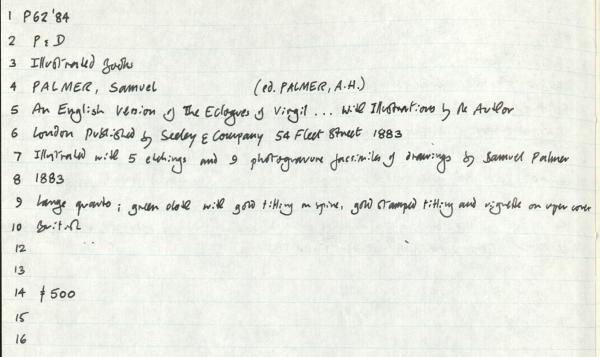 1 P62'84
2 P & D
3 Illustrated books
4 PALMER, Samuel (ed. PALMER, A.H.)
5 An English Version of The Eclogues of Virgil ... With Illustrations by the Author
6 London Published by Seeley & Company 54 Fleet Street 1883
7 Illustrated with 5 etchings and 9 photogravure facsimiles of drawings by Samuel Palmer
8 1883
9 Large quarto; green cloth with gold titling on spine, gold stamped titling and vignette on upper cover
10 British
12
13
14 $500
15
16